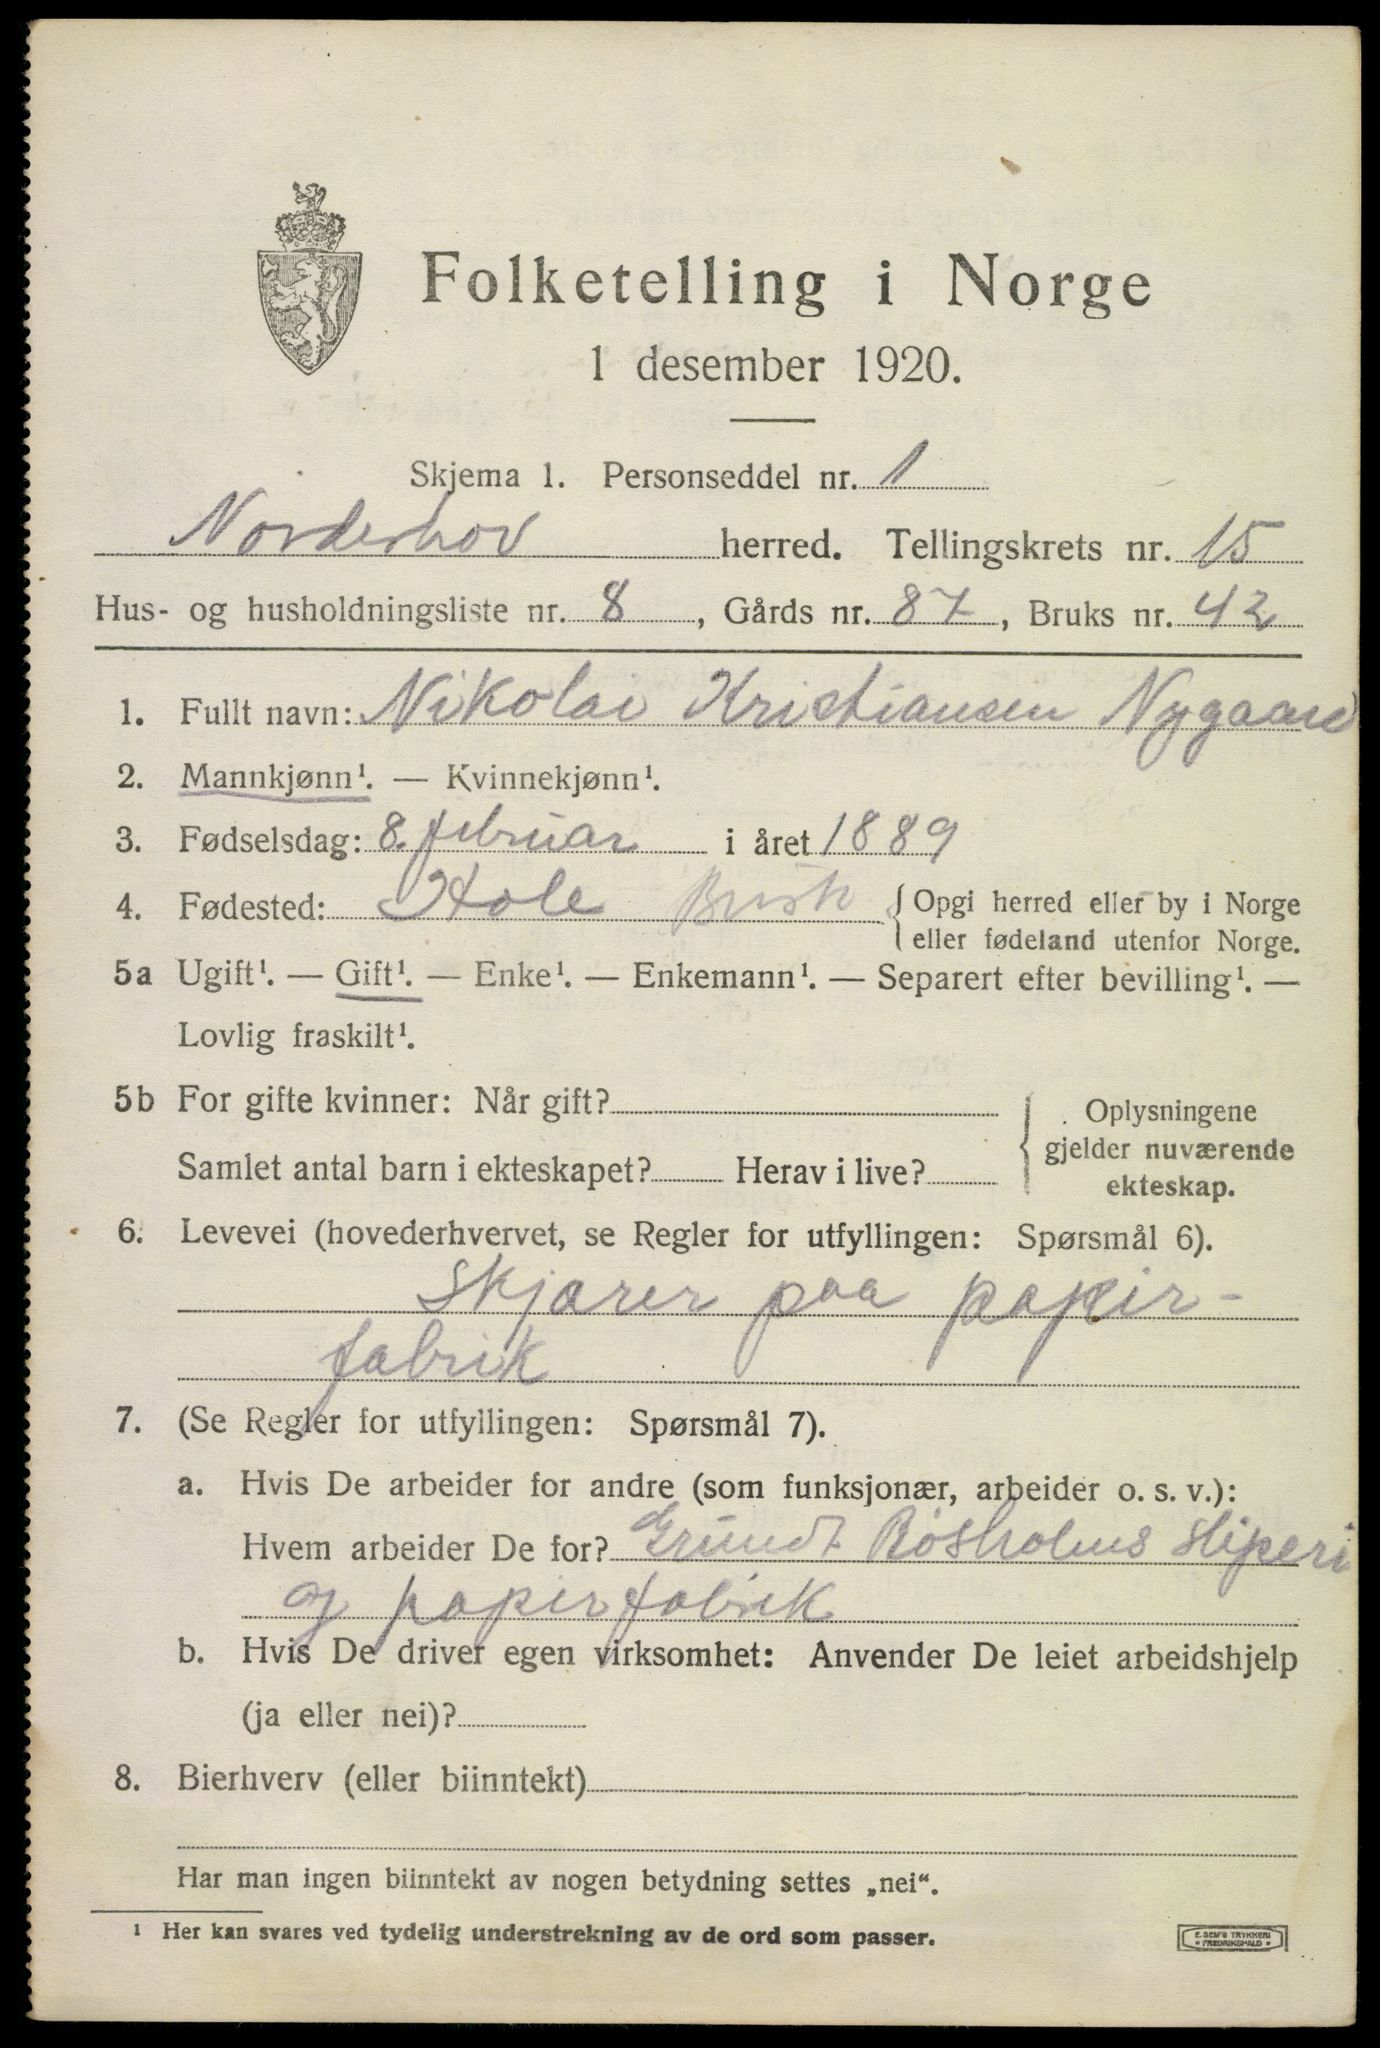 Folketelling i Norge
1 desember 1920.
Skjema 1. Personseddel nr. 1
Norderhov herred. Tellingskrets nr. 15
Hus- og husholdningsliste nr. 8, Gårds nr. 87, Bruks nr. 42
1. Fullt navn: Nikolai Kristiansen Nygaard
2. Mannkjønn¹. — Kvinnekjønn¹.
3. Fødselsdag: 8. februar i året 1889
4. Fødested: Hole Busk { Opgi herred eller by i Norge
eller fødeland utenfor Norge.
5a Ugift¹. — Gift¹. — Enke¹. — Enkemann¹. — Separert efter bevilling¹. —
Lovlig fraskilt¹.
5b For gifte kvinner: Når gift?
Samlet antal barn i ekteskapet? Herav i live?
{ Oplysningene
gjelder nuværende
ekteskap.
6. Levevei (hovederhvervet, se Regler for utfyllingen: Spørsmål 6).
Skjærer paa papir-
fabrik
7. (Se Regler for utfyllingen: Spørsmål 7).
a. Hvis De arbeider for andre (som funksjonær, arbeider o. s. v.):
Hvem arbeider De for? Grundt Bøsholms sliperi
og papirfabrik
b. Hvis De driver egen virksomhet: Anvender De leiet arbeidshjelp
(ja eller nei)?
8. Bierhverv (eller biinntekt)
Har man ingen biinntekt av nogen betydning settes „nei“.
¹ Her kan svares ved tydelig understrekning av de ord som passer.
E. SEM'S TRYKKERI
• FREDRIKSHALD •